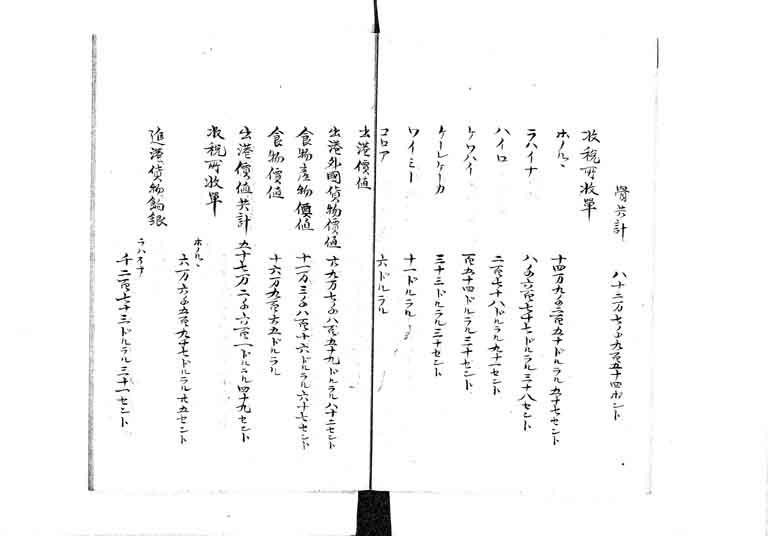 骨共計 八十二万七千九百五十四ポント
収税所收單
ホノルヽ 十四万九千二百五十ドルラル五十七セント
ラハイナ 八千六百七十七ドルラル三十八セント
ハイロ 二百七十八ドルラル九十一セント
ケワハイ 百五十四ドルラル三十セント
ケーレケーカ 三十三ドルラル三十セント
ワイミー 十一ドルラル
コロア 六ドルラル
出港價値
出港外國貨物價値 六九万七千八百五十九ドルラル八十二セント
食物産物價値 十一万三千八百十六ドルラル六十七セント
食物價値 十六万九百六五ドルラル
出港價値共計 五十七万二千六百一ドルラル四十九セント
收税所收單
ホノルヽ 六万六千五百九十七ドルラル六五セント
進港貨物餉銀
ラハイナ 千二百七十三ドルラル三十一セント